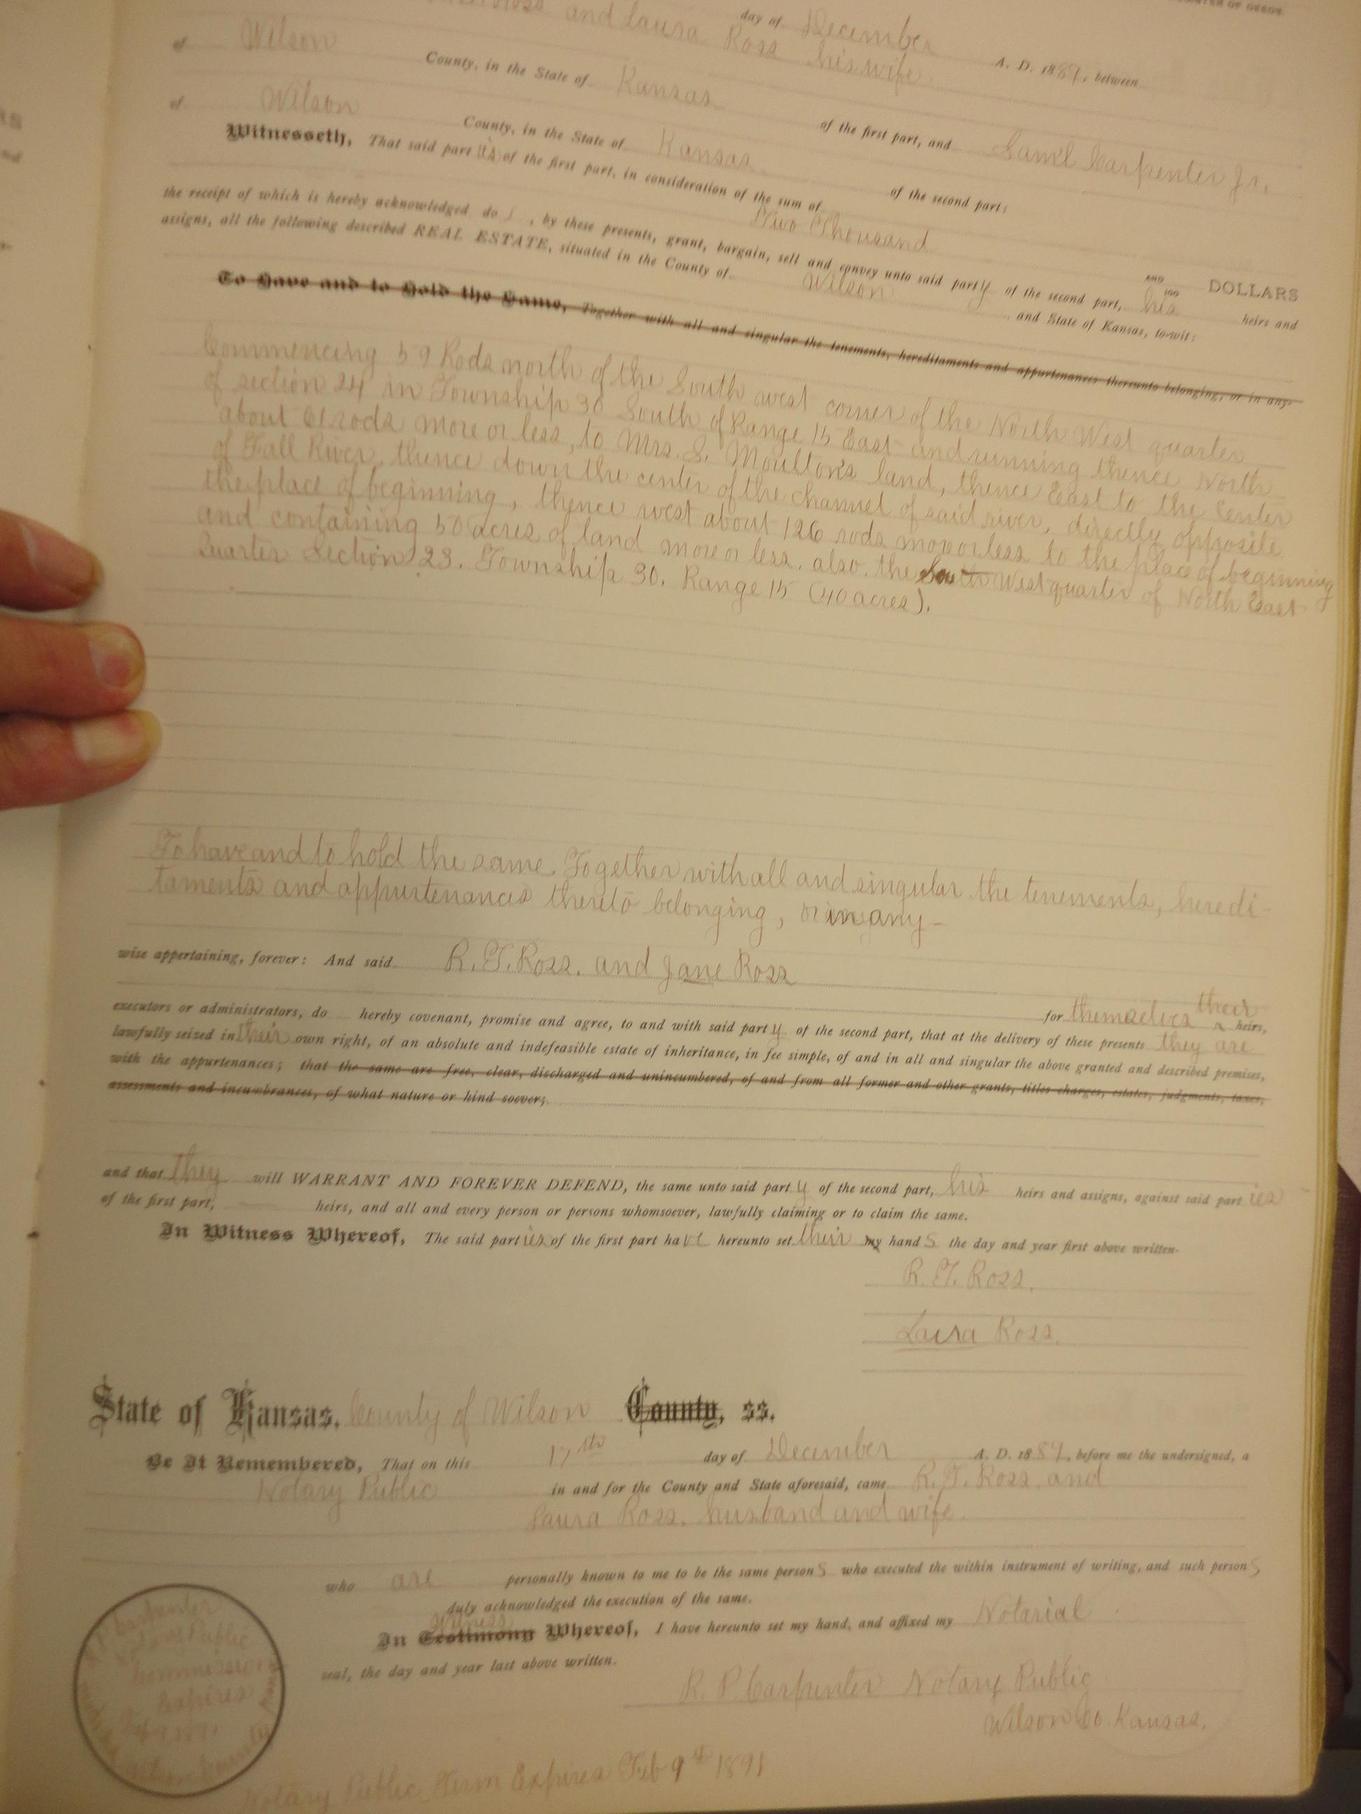 day of December A. D. 1889, between
Ross and Laura Ross his wife
of Wilson County, in the State of Kansas of the first part, and Sam'l Carpenter Jr.
of Wilson County, in the State of Kansas. of the second part:
Witnesseth, That said parties of the first part, in consideration of the sum of
Two Thousand AND 100 DOLLARS
the receipt of which is hereby acknowledged do , by these presents, grant, bargain, sell and convey unto said party of the second part, his heirs and
assigns, all the following described REAL ESTATE, situated in the County of Wilson and State of Kansas, to-wit:
To Have and to Hold the Same, Together with all and singular the tenements, hereditaments and appurtenances thereunto belonging, or in any-
Commencing 59 Rods north of the South west corner of the North West quarter
of section 24 in Township 30 South of Range 15 East and running thence North
about 61 rods more or less, to Mrs. S. Moulton's land, thence East to the Center
of Fall River, thence down the center of the channel of said river, directly opposite
the place of beginning, thence west about 126 rods more or less to the place of beginning
and containing 50 acres of land more or less. also. the South West quarter of North East
Quarter Section 23. Township 30. Range 15 (40 acres).
To have and to hold the same. Together with all and singular the tenements, heredi-
taments and appurtenances thereto belonging, or in any-
wise appertaining, forever: And said R. T. Ross. and Jane Ross
for themselves their heirs,
executors or administrators, do hereby covenant, promise and agree, to and with said party of the second part, that at the delivery of these presents they are
lawfully seized in their own right, of an absolute and indefeasible estate of inheritance, in fee simple, of and in all and singular the above granted and described premises,
with the appurtenances; that the same are free, clear, discharged and unincumbered, of and from all former and other grants, titles charges, estates, judgments, taxes,
assessments and incumbrances, of what nature or kind soever;
and that they will WARRANT AND FOREVER DEFEND, the same unto said party of the second part, his heirs and assigns, against said parties
of the first part, heirs, and all and every person or persons whomsoever, lawfully claiming or to claim the same.
In Witness Whereof, The said parties of the first part have hereunto set their my hands the day and year first above written.
R. T. Ross.
Laura Ross.
State of Kansas. County of Wilson County, ss.
Be It Remembered, That on this 17th day of December A. D. 1889, before me the undersigned, a
Notary Public in and for the County and State aforesaid, came R. T. Ross. and
Laura Ross. husband and wife.
who are personally known to me to be the same persons who executed the within instrument of writing, and such persons
duly acknowledged the execution of the same.
witness
In Testimony Whereof, I have hereunto set my hand, and affixed my Notarial
seal, the day and year last above written.
R. P. Carpenter Notary Public
Wilson Co. Kansas.
R. P. Carpenter
Notary Public
Commission
Expires
Notary Public Term Expires Feb 9th 1891